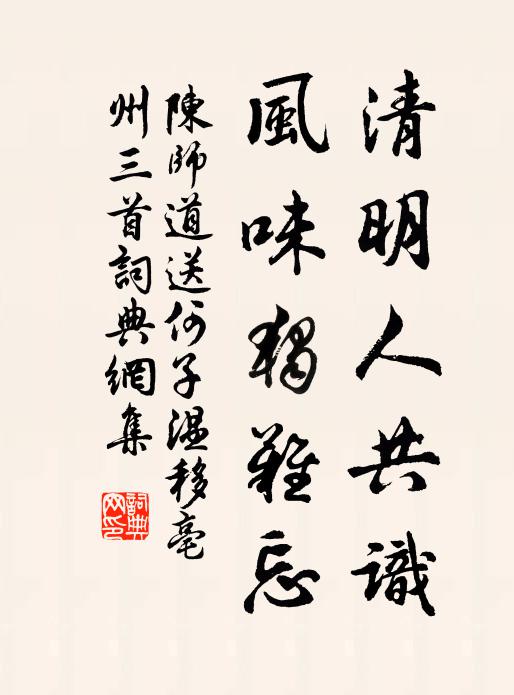 清明人共識
風味獨難忘
陳師道送何子温移亳
州三首詞典網集
詞典
网印